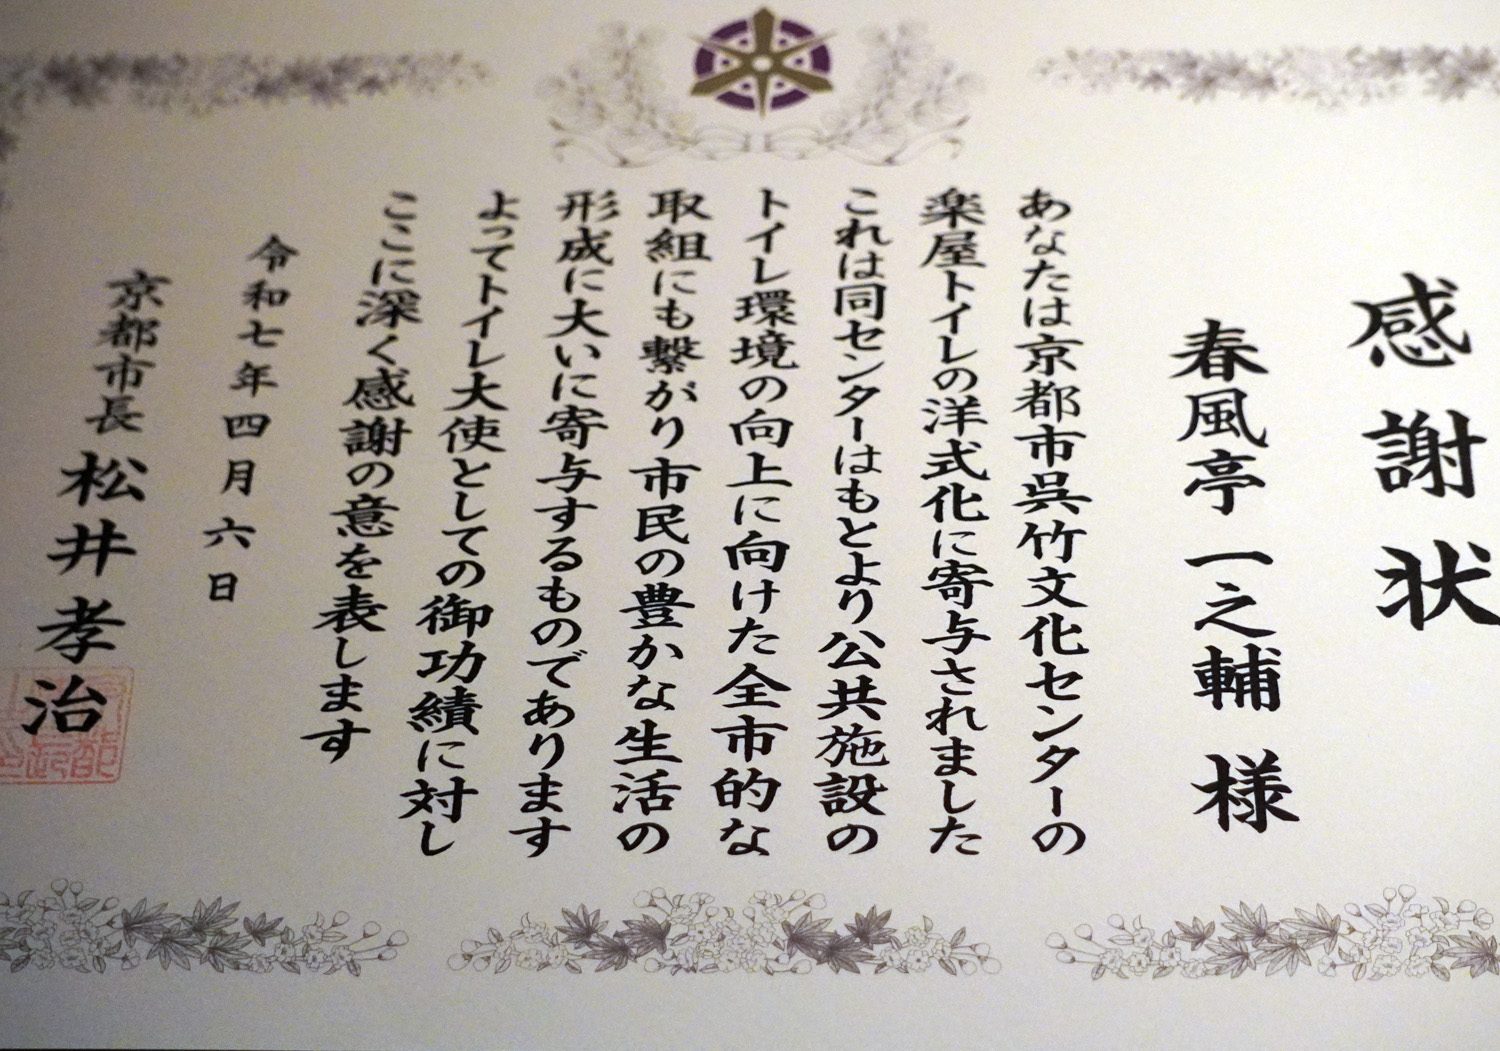 感謝状
春風亭一之輔様
あなたは京都市呉竹文化センターの
楽屋トイレの洋式化に寄与されました
これは同センターはもとより公共施設の
トイレ環境の向上に向けた全市的な
取組にも繋がり市民の豊かな生活の
形成に大いに寄与するものであります
よってトイレ大使としての御功績に対し
ここに深く感謝の意を表します
令和七年四月六日
京都市長 松井孝治